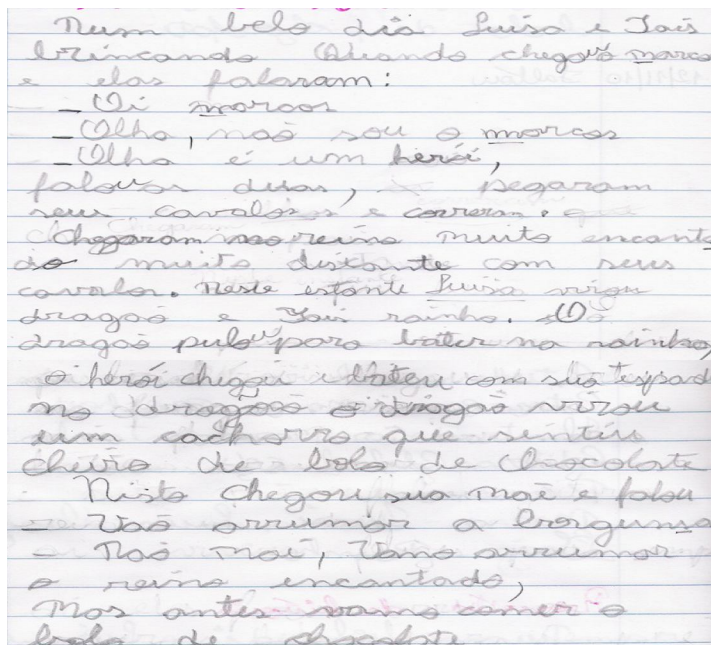 Num belo dia Luisa e Tais
brincando Quando chegou marco
e elas falaram:
– Oi marcos
– Olha, não sou o marcos
– Olha é um herói,
falou as duas, pegaram
seus cavalos e correram.
Chegaram no reino muito encanta
do muito distante com seus
cavalos. Neste estante Luisa virou
dragão e Tais rainha. O
dragão pulou para bater na rainha,
o herói chegou e bateu com sua espad
no dragão o dragão virou
um cachorro que sentiu
cheiro de bolo de chocolate
Nisto chegou sua mãe e falou
– Vão arrumar a bagunça
– Não mãe, vamo arrumar
o reino encantado,
Mas antes vamo comer o
bolo de chocolate